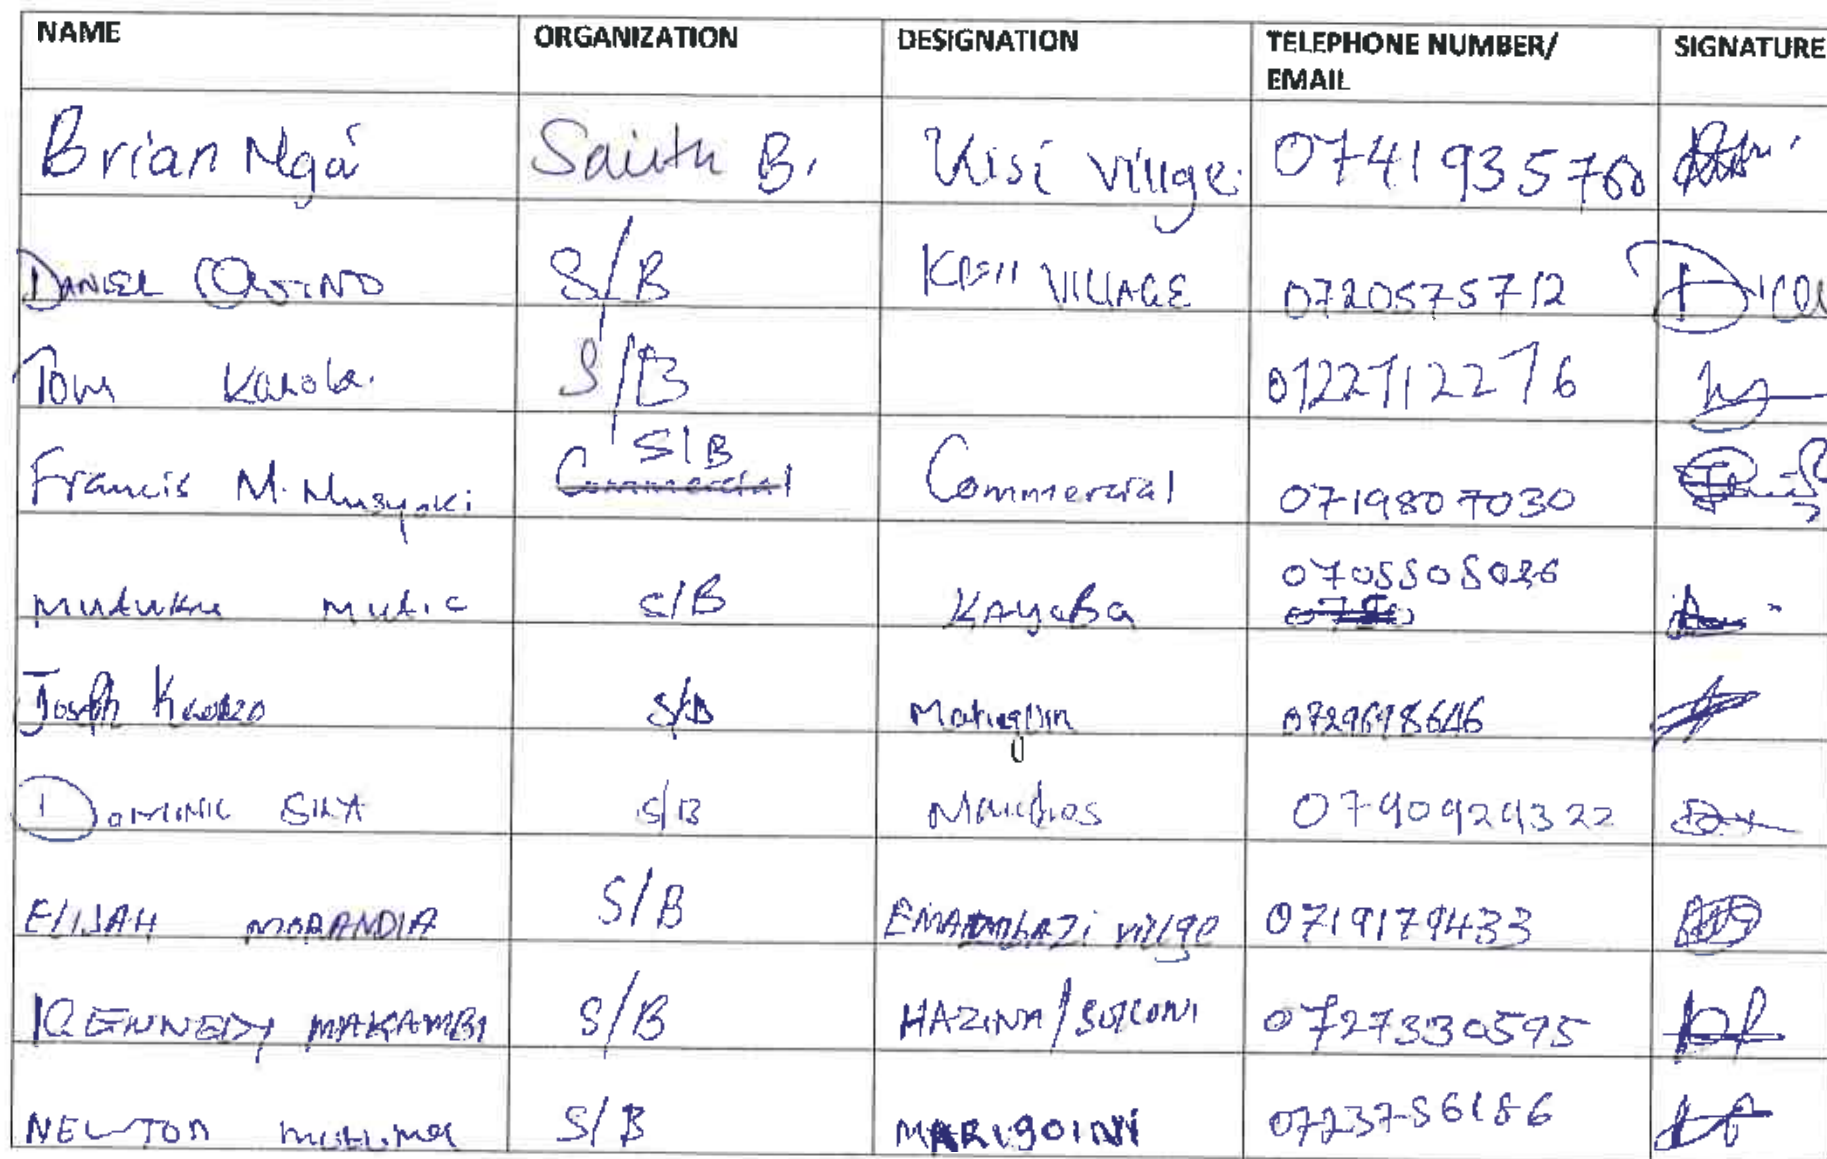 NAME ORGANIZATION DESIGNATION TELEPHONE NUMBER/ SIGNATURE
EMAIL
Brian Nga' South B. Kisi Village. 0741935700
DANIEL S/B KISII VILLAGE 0720575712
Tom S/B 0722712276
Francis M. Musyoki S/B Commercial Commercial 0719807030
mutuku S/B KAyaBa 0705505086
Joseph S/B 0729698646
DOMINIC S/B 0790929322
ELIJAH MORANDIA S/B village 0719179433
KENNEDY MAKAMBI S/B HAZINA/SOKONI 0727330595
NEWTON S/B MARIGOINI 0723786186